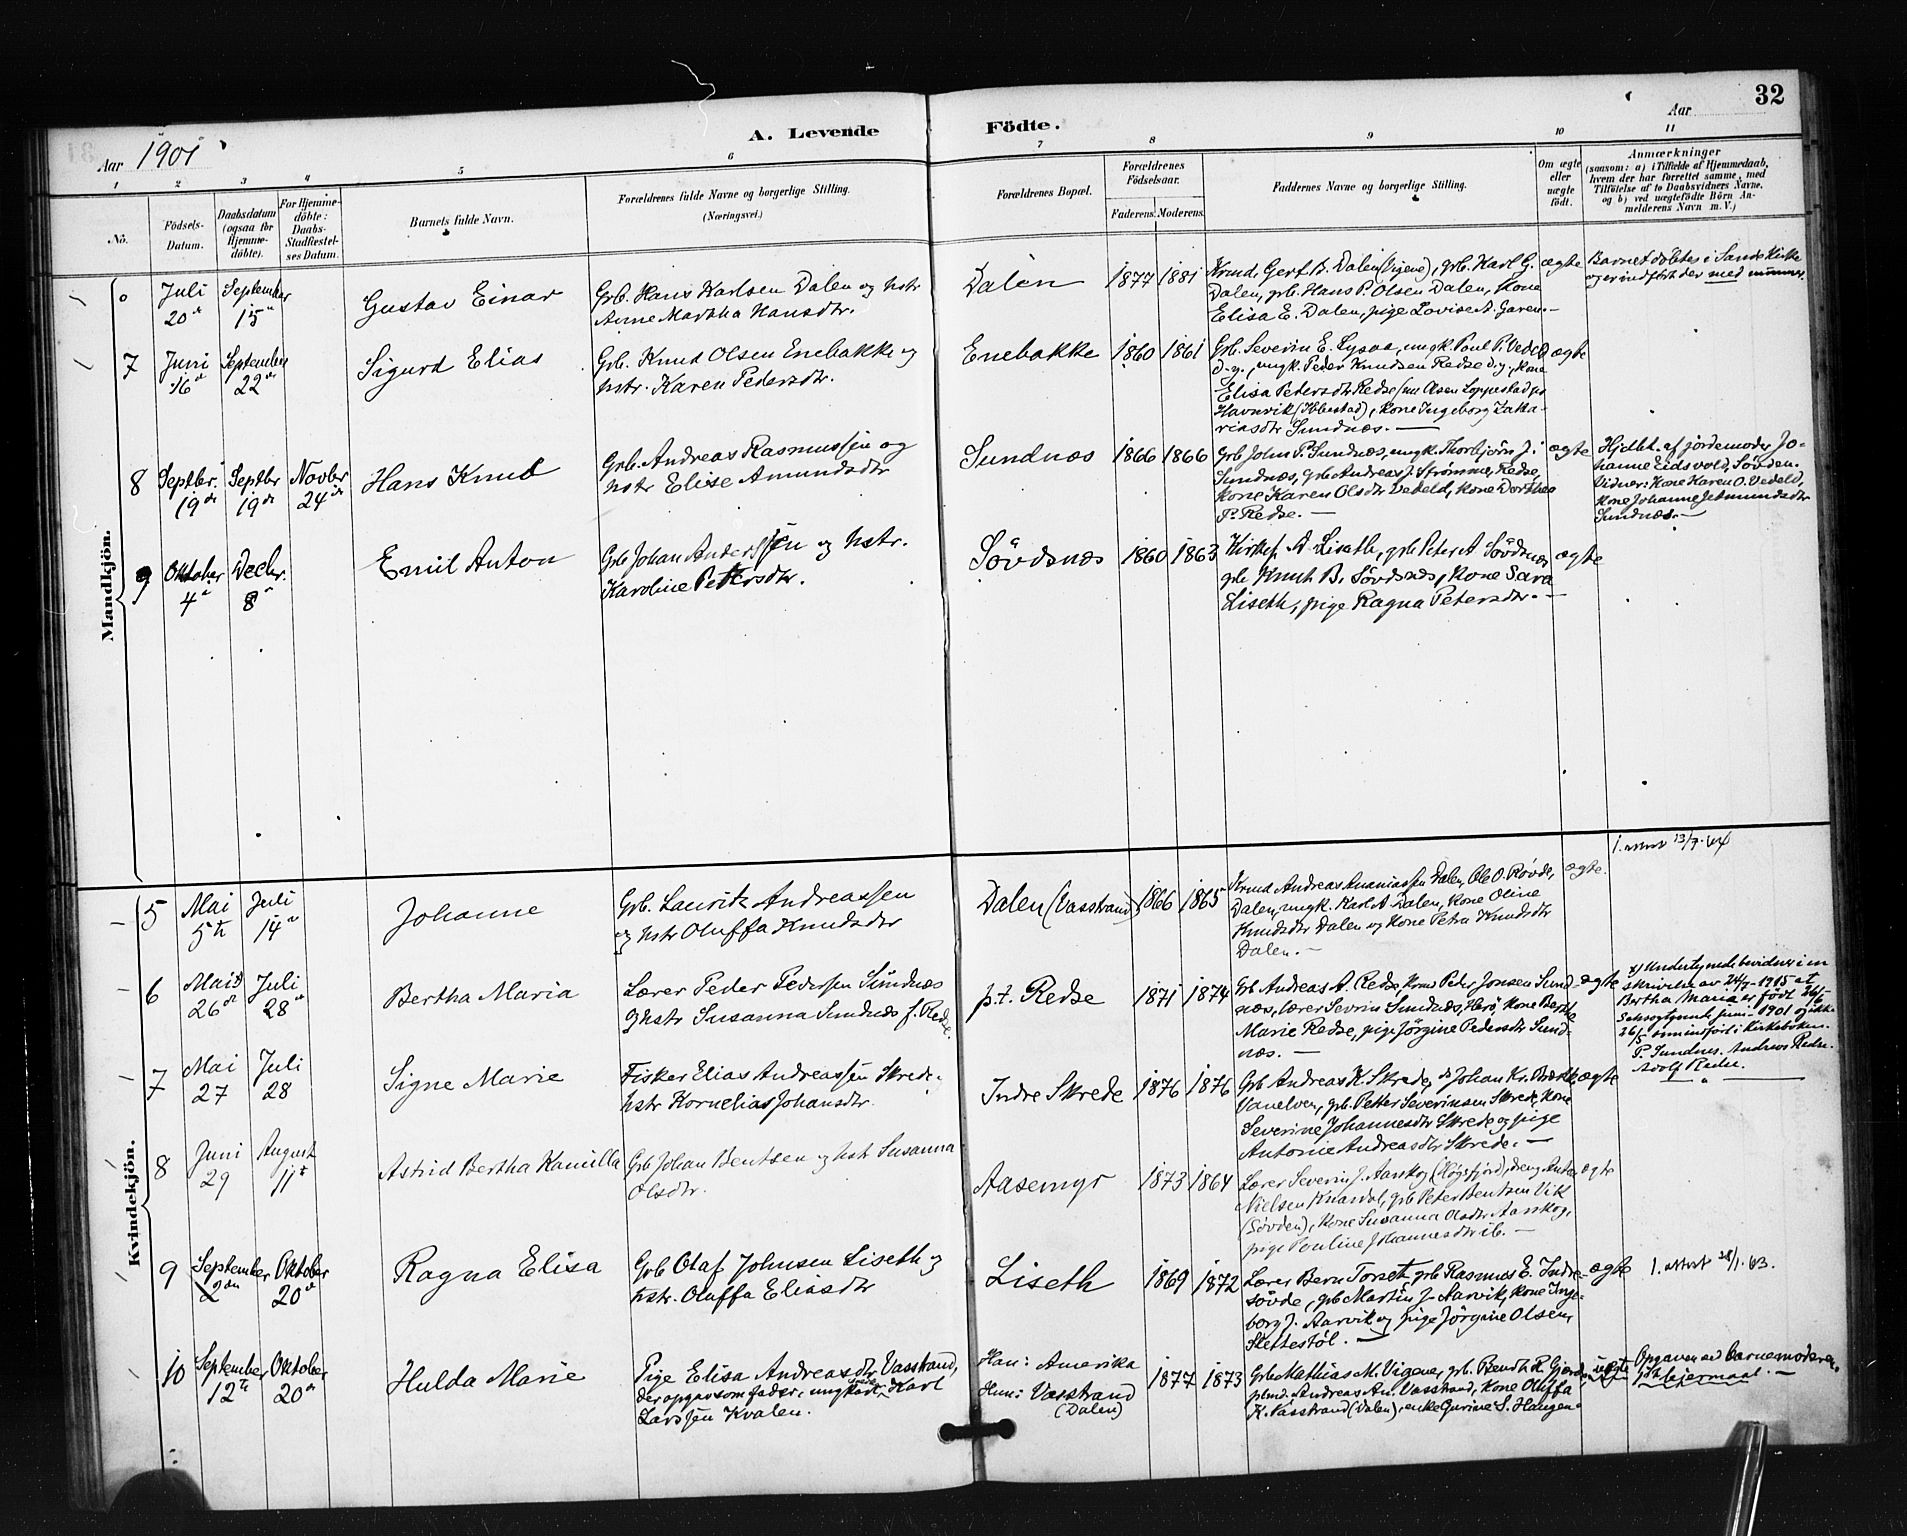 32
A. Levende Födte.
Aar 1901
Aar
1 2 3 4 5 6 7 8 9 10 11
No.
Födsels-Datum.
Daabsdatum (ogsaa for Hjemme-döbte).
For Hjemme-döbte: Daabs-Stadfæstel-ses Datum.
Barnets fulde Navn.
Forældrenes fulde Navne og borgerlige Stilling.
(Næringsvei.)
Forældrenes Bopæl.
Forældrenes Födselsaar.
Faderens. Moderens.
Faddernes Navne og borgerlige Stilling.
Om ægte eller uægte födt.
Anmærkninger
(saasom: a) i Tilfælde af Hjemmedaab,
hvem der har forrettet samme, med
Tilföielse af to Daabsvidners Navne,
og b) ved uægtefödte Börn An-
melderens Navn m. V.)
Mandkjön.
° Juli 20de September 15de
Gustav Einar
Grb. Hans Karlsen Dalen og hstr
Anne Martha Hansdtr.
Dalen 1877 1881
Krmd. Gert B. Dalen (Vigene), grb. Karl G.
Dalen, grb. Hans P. Olsen Dalen, Kone
Elisa E. Dalen, pige Lovise A. Garen.—
ægte
Barnet döbtes i Sande Kirke
og er indfört der med nummer
7 Juni 16de September 22de
Sigurd Elias
Grb. Knud Olsen Enebakke og
hstr. Karen Pedersdtr.
Enebakke 1860 1861
Grb. Severin E. Lysaa, ungk. Poul P. Vedeld
d.y., ungk. Peder Knudsen Redse d.y., kone
Elisa Pedersdtr Redse
Havnvik (Ibbestad), kone Ingeborg Zaka-
riasdtr Sundnæs.—
ægte
8 Septbr. 19de Septbr 19de Novbr 24de
Hans Knud
Grb. Andreas Rasmussen og
hstr Elise Amundsdtr
Sundnæs 1866 1866
Grb John P. Sundnæs, ungk. Thorbjörn J.
Sundnæs, grb Andreas J. Strömmen, Redse,
kone Karen Olsdtr Vedeld, kone Dorthea
P. Redse.—
ægte
Hjdbt. af jordemoder Jo-
hanne Eidsvold, Sövden.
Vidner: Kone Karen O. Vedeld,
kone Johanne Jetmundsdtr
Sundnæs.—
9 Oktober 4de Decbr. 8de
Emil Anton
Grb Johan Anderssen og hstr.
Karoline Petersdtr.
Sövdsnæs 1860 1863
A. Liseth, grb Peter A Sövdsnæs
grb Knut B. Sövdsnæs, kone Sara
Liseth, pige Ragna Petersdtr.—
ægte
Kvindekjön.
1. attest 13/7.44
5 Mai 5te Juli 14de
Johanne
Grb. Lauritz Andreassen
og hstr Oluffa Knudsdtr
Dalen (Vasstrand) 1866 1865
Krmd Andreas Ananiassen Dalen, Ole O. Rövde,
Dalen, ungk. Karl A. Dalen, kone Oline
Knudsdtr Dalen og kone Petra Knudsdtr
Dalen.—
ægte.
6 Mai 26de Juli 28de
Bertha Maria
Lærer Peder Pederssen Sundnæs
og hstr Susanna Sundnæs f. Redse.
p.t. Redse 1871 1874
Grb Andreas A. Redse, krmd Peder Jonsen Sund-
næs, lærer Sevrin Sundnæs, Herö, kone Berthe
Marie Redse, pige Jörgine Pedersdtr Sund-
næs.—
ægte
x) Undertegnede bevidner i en
skrivelse av 24/7 1915 at
Bertha Maria er födt 26/6
seksogtyvende juni 1901 og ikke
26/5 som indfört i Kirkeboken.
P. Sundnes. Andreas Redse.
Adolf Redse.
7 Mai 27 Juli 28
Signe Marie
Fisker Elias Andreassen Skrede,
hstr Kornelia Johansdtr.
Indre Skrede 1876 1876
Grb Andreas K. Skrede, do Johan Kr. Brædtk,
Vanelven, grb. Petter Severinsen Skrede, kone
Severine Johannesdtr Skrede og pige
Antonie Andreasdtr Skrede.—
ægte
8 Juni 29 August 11te
Astrid Bertha Kamilla
Grb Johan Bentsen og hstr Susanna
Olsdtr.
Aasemyr 1873 1864
Lærer Severin J. Aarskog (Högsfjord), dreng Anton
Nielsen Knardal, grb Peter Bentsen Vik
(Sövden), kone Susanna Olsdtr Aarskog,
pige Pouline Johannesdtr ib.—
ægte
9 September 2den Oktober 20de
Ragna Elisa
Grb Olaf Johnsen Liseth og
hstr. Oluffa Eliasdtr
Liseth 1869 1872
Lærer Bern Torset, grb Rasmus E. Indre-
sövde, grb Martin J. Aarvik, kone Inge-
borg J. Aarvik og pige Jörgine Olsen,
Slettestöl.—
ægte
1. attest 28/1.43.
10 September 12te Oktober 20de
Hulda Marie
Pige Elisa Andreasdtr Vasstrand,
der opgav som fader: ungkarl Karl
Larssen Kvalen.
Han: Amerika
Hun: Vasstrand
(Dalen)
1877 1873
Grb Mathias M. Vigene, grb. Bendt R. Gjerde,
grbmd. Andreas An. Vasstrand, kone Oluffa
K. Vasstrand (Dalen), enke Gurine S. Haugen
uægte
Opgaven ved barnemoderen.
1ste leiermaal.—